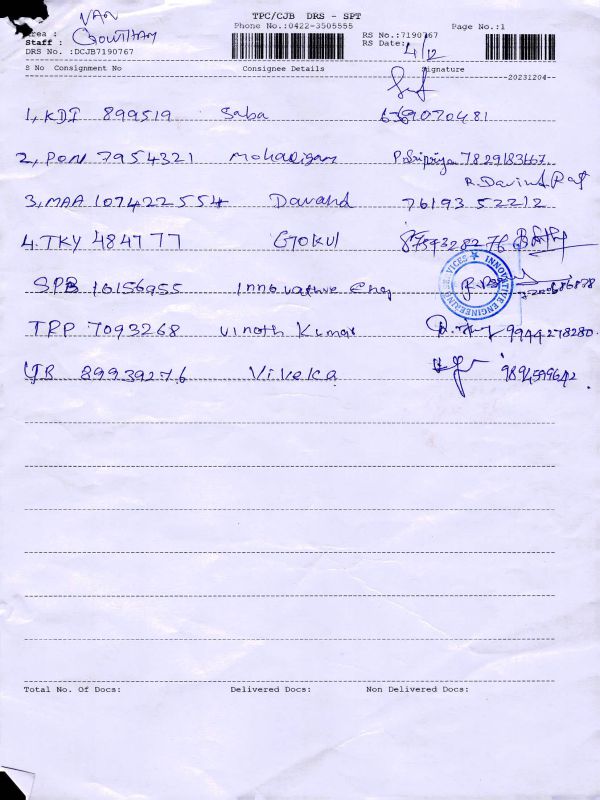 VAN
TPC/CJB DRS - SPT
Area :
Phone No.:0422-3505555
Page No.:1
Staff : GOWTHAM
RS No.:7190767
DRS No. :DCJB7190767
RS Date: 4/12
S No Consignment No Consignee Details Signature
20231204
1, KDI 899519 Saba
2, PON 7954321 7829183667
R. Davind Raj
3, MAA 107422554 Davand 76193 52212
4. TKY 4847177 Gokul
SPB 10156955 Innovative Eng
INNOVATIVE ENGINEERING SERVICES
TRP 7093268 Vinoth Kumar 9944278280
89939276 Viveka
Total No. Of Docs: Delivered Docs: Non Delivered Docs: